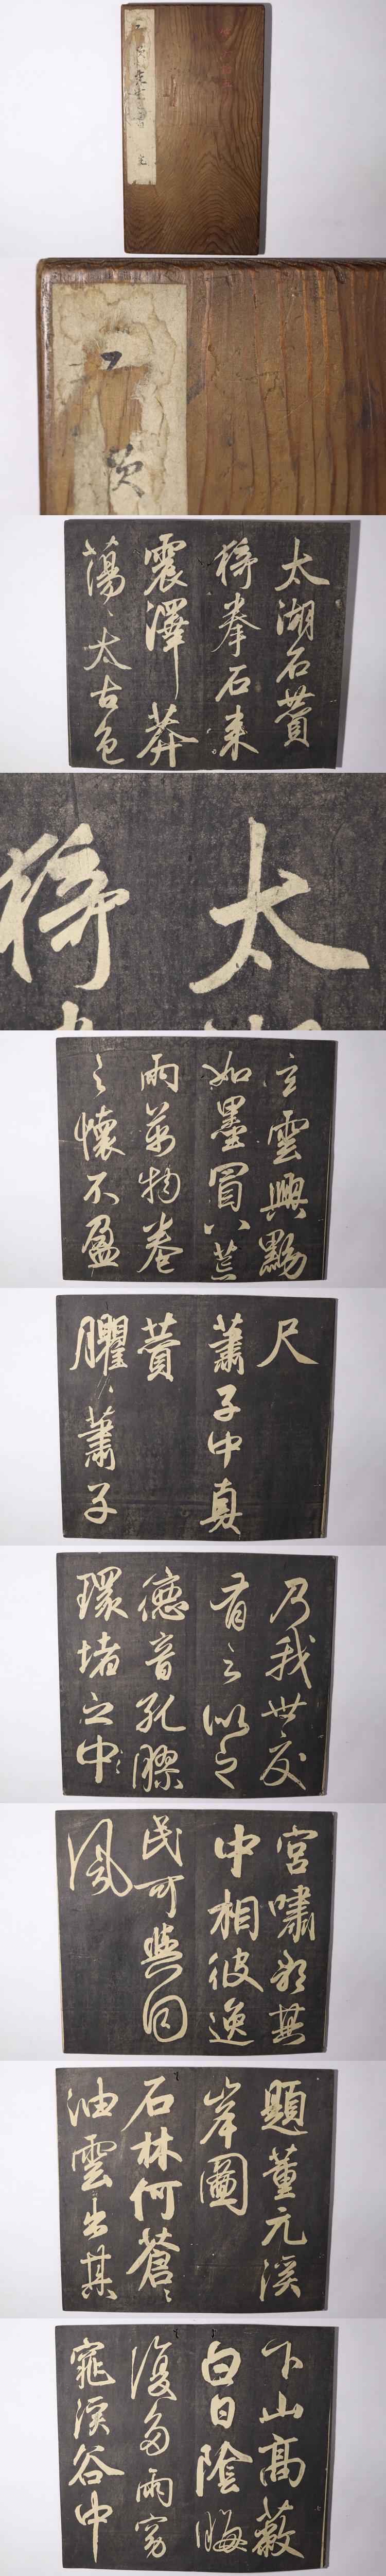 太湖石贊
猗拳石来
震澤莽
蕩〻太古色
猗
太
玄雲興黝
如墨冒八荒
雨萬物卷
之懷不盈
尺
蕭子中真
贊
臞〻蕭子
乃我世交
有之似之
德音孔膠
環堵之中
宮嘯歌其
中相彼逸
民可與同
風
題董元溪
岸圖
石林何蒼〻
油雲出其
下山高蔽
白日陰晦
復多雨窈
窕溪谷中